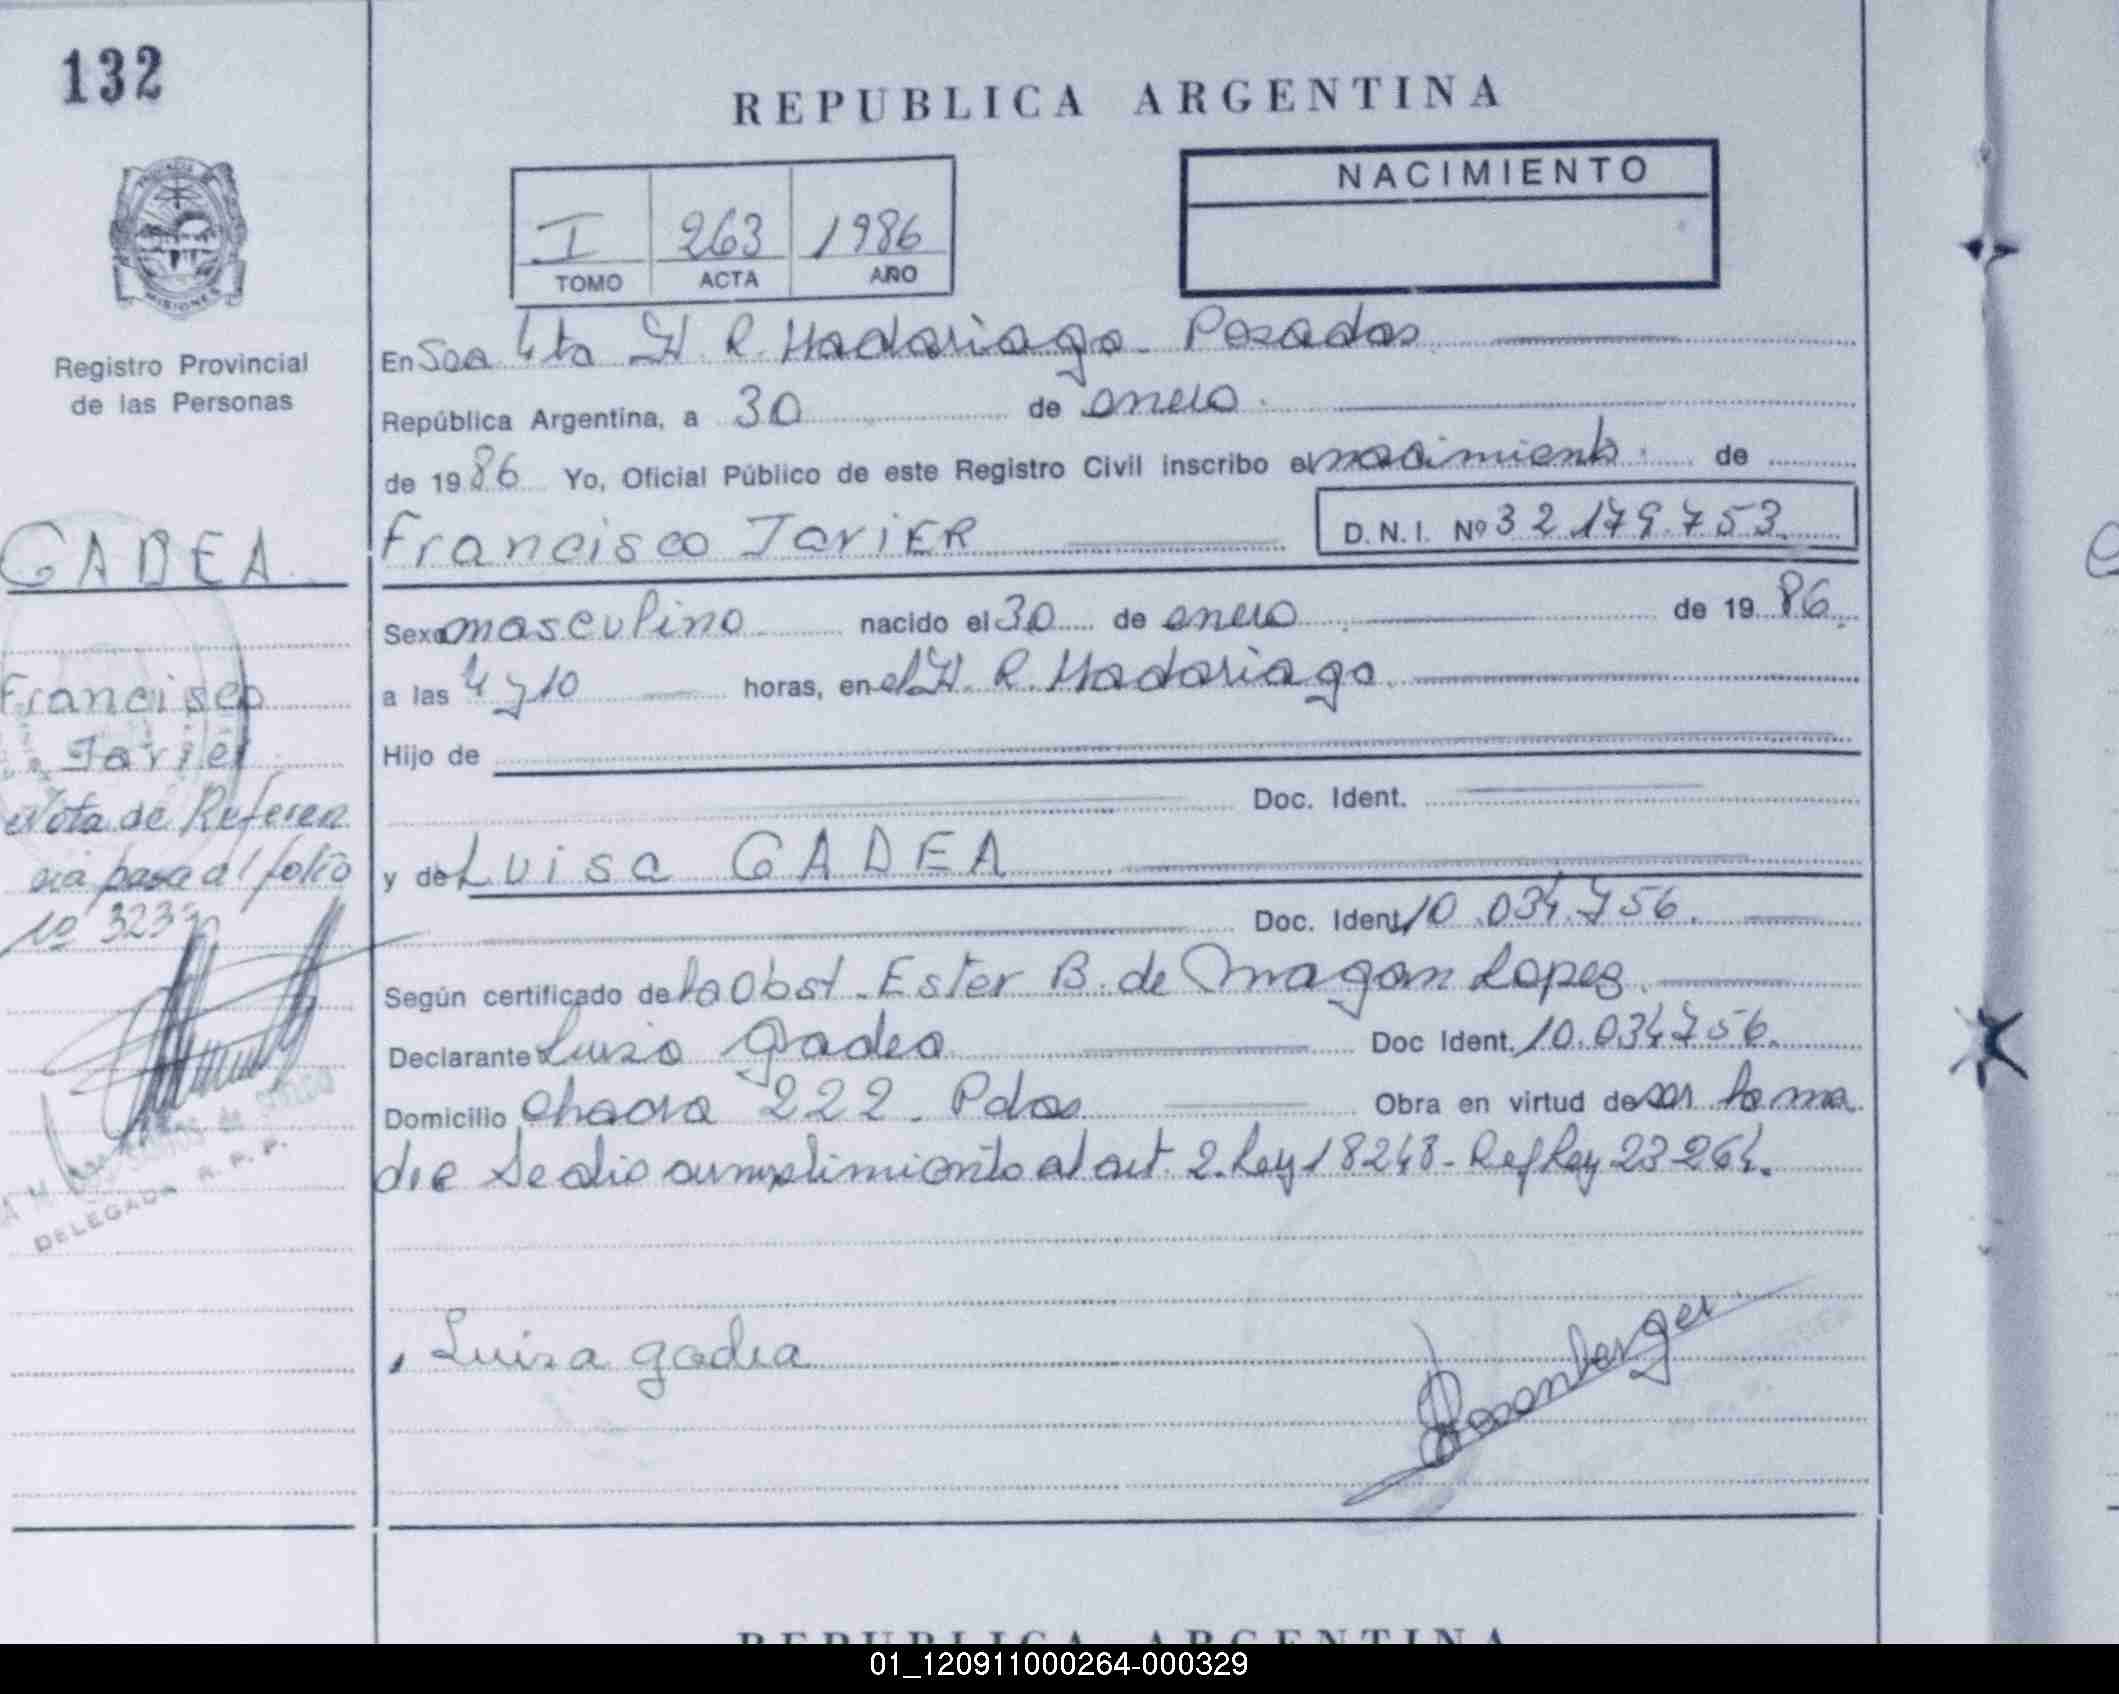 132
REPUBLICA ARGENTINA
NACIMIENTO
I 263 1986
TOMO ACTA AÑO
MISIONES
Registro Provincial
de las Personas
En Sec 4ta H. R. Madariaga - Posadas
República Argentina, a 30 de enero
de 1986 Yo, Oficial Público de este Registro Civil inscribo el nacimiento de
GADEA
Francisco JaviER
D.N.I. Nº 32.179.753
Sexo masculino nacido el 30 de enero de 1986.
Francisco
Javier
a las 4 y 10 horas, en el H. R. Madariaga.
Hijo de
Nota de Referen
cia pasa al folio
nº 323
Doc. Ident.
y de Luisa GADEA
Doc. Ident. 10.034.756.
Según certificado de la Obst. Ester B. de Magan Lopez.
Declarante Luisa Gadea Doc Ident. 10.034.756.
Domicilio Chacra 222 - Pdas Obra en virtud de ser la ma
dre Se dio cumplimiento al art. 2. Ley 18248 - Ref Ley 23264.
DELEGADA R. P. P.
Luisa gadea
REPUBLICA ARGENTINA
01_120911000264-000329